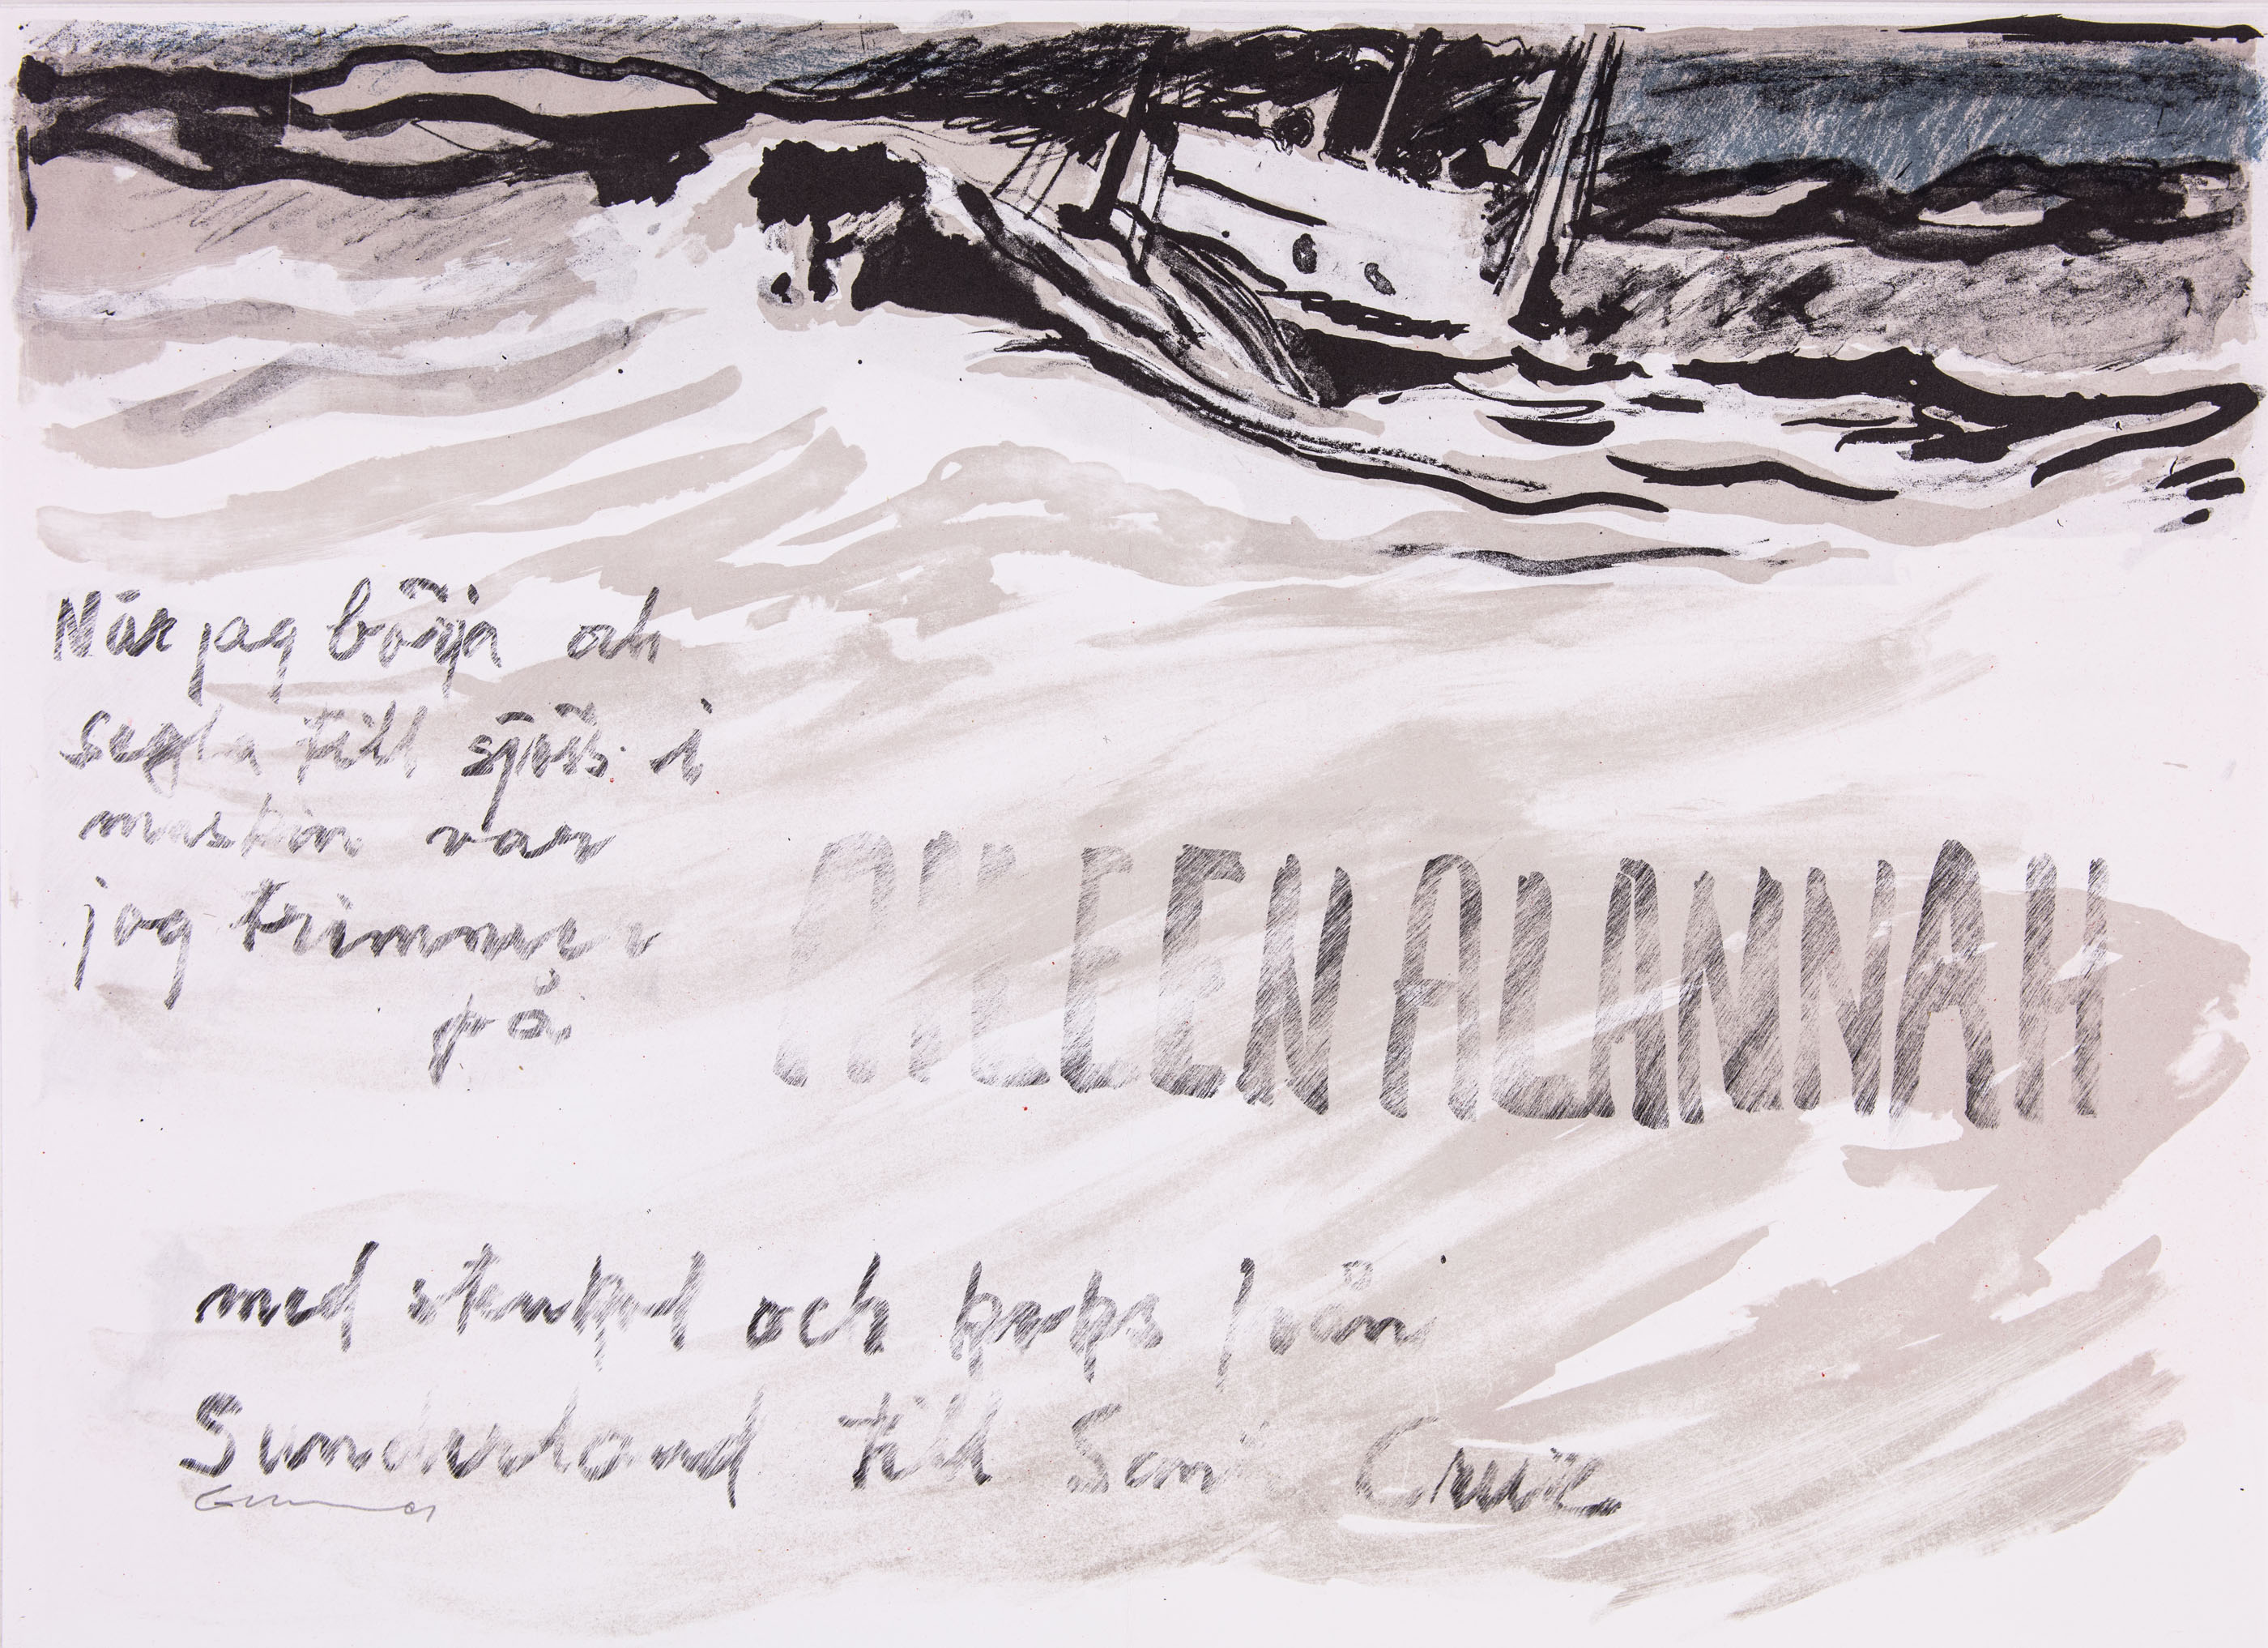 När jag börja och
segla till sjöss i
maskin var
jag trimmer
på
AILEEN ALANNAH
med stenkol och koks från
Sunderland till Sant